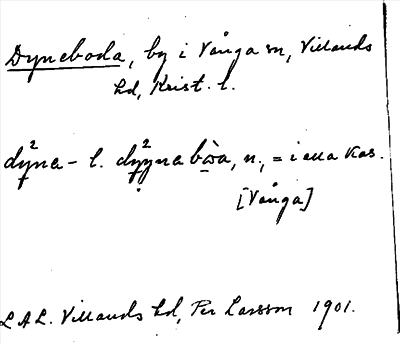 Dyneboda, by i Vånga sn, Villands
hd, Krist. l.
dy²na- l. dy²yna bòa, n, = i alla kas.
[Vånga]
L.A.L. Villands hd, Per Larsson 1901.